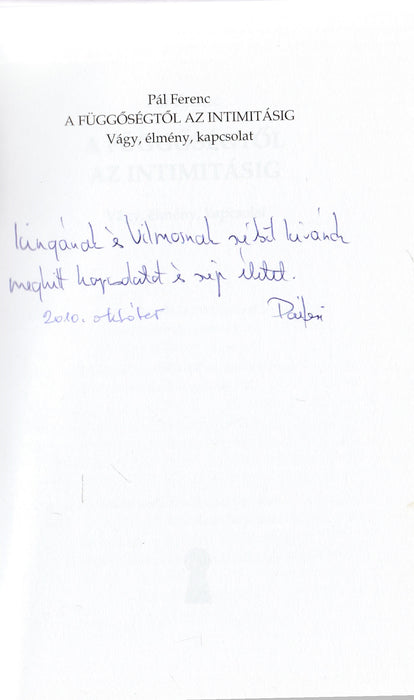 Pál Ferenc
A FÜGGŐSÉGTŐL AZ INTIMITÁSIG
Vágy, élmény, kapcsolat
Kingának és Vilmosnak kívánok
meghitt kapcsolatot és szép életet.
2010. október
Pálferi